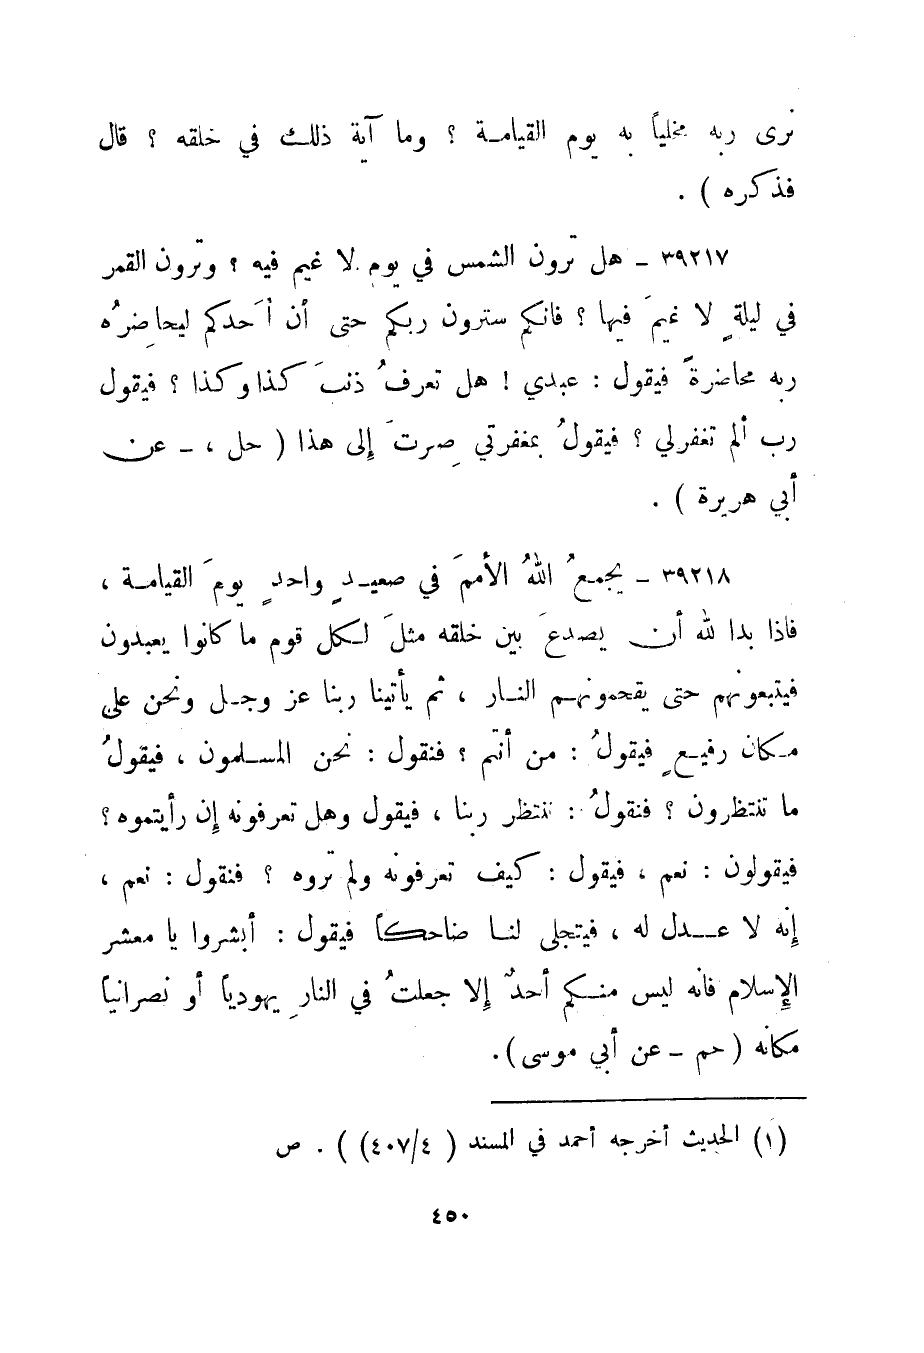 نرى ربه مخلياً به يوم القيامـة ؟ وما آية ذلك في خلقه ؟ قال
فذكره ) .
٣٩٢١٧ ـ هل ترون الشمس في يوم لا غيم فيه ؟ وترون القمر
في ليلةٍ لا غيمَ فيها ؟ فانكم سترون ربكم حتى أن أحدكم ليحاضِرُه
ربه محاضرةً فيقول : عبدي ! هل تعرفُ ذنبَ كذا وكذا ؟ فيقول
رب ألم تغفر لي ؟ فيقولُ بمغفرتي صِرتَ إلى هذا ( حل ، ـ عن
أبي هريرة ) .
٣٩٢١٨ ـ يجمعُ اللهُ الأممَ في صعيـدٍ واحدٍ يومَ القيامـة ،
فاذا بدا لله أن يصدعَ بين خلقه مثلَ لكل قوم ما كانوا يعبدون
فيتبعونهم حتى يقحمونهـم النـار ، ثم يأتينا ربنا عز وجـل ونحن على
مـكان رفيـعٍ فيقولُ : من أنتم ؟ فنقول : نحن المسـلمون ، فيقولُ
ما تنتظرون ؟ فنقولُ : ننتظر ربنا ، فيقول وهل تعرفونه إن رأيتموه ؟
فيقولون : نعم ، فيقول : كيف تعرفونه ولم تروه ؟ فنقول : نعم ،
إنه لا عـــدل له ، فيتجلى لنـا ضاحكاً فيقول : أبشروا يا معشر
الإسلام فانه ليس منـكم أحدٌ إلا جعلتُ في النارِ يهودياً أو نصرانياً
مكانه ( حم ـ عن أبي موسى ) .
(١) الحديث أخرجه أحمد في المسند ( ٤/٤٠٧) ) . ص
٤٥٠